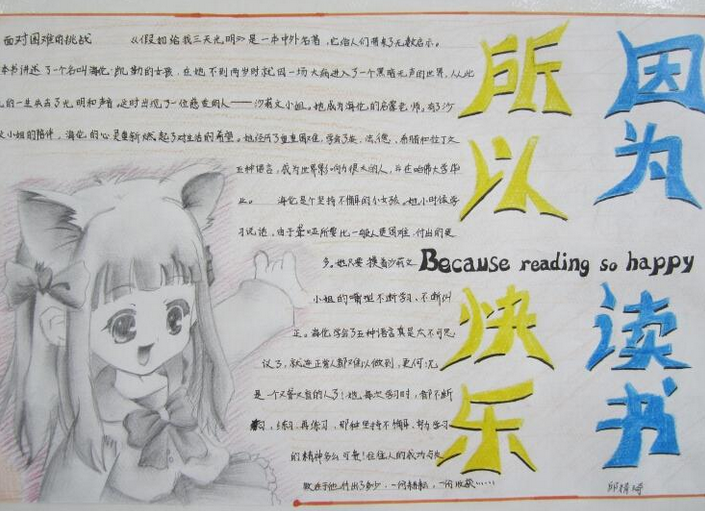 面对困难的挑战 《假如给我三天光明》是一本中外名著，它给人们带来了无数启示。
本书讲述了一个名叫海伦·凯勒的女孩，在她不到两岁时就因一场大病进入了一个黑暗无声的世界，从此
的一生失去了光明和声音。这时出现了一位慈爱的人——沙莉文小姐。她成为海伦的启蒙老师，有了沙
文小姐的陪伴，海伦的心是重新燃起了对生活的希望。她经历了重重困难，学会了英、法、德、希腊和拉丁文
五种语言，成为世界影响力很大的人，并在哈佛大学毕
业。 海伦是个坚持不懈的小女孩。她小时候学
习说话，由于聋哑所要比一般人更困难，付出的更
多。她只要摸着沙莉文
小姐的嘴型不断学习、不断纠
正。海伦学会了五种语言真是太不可思
议了，就连正常人都难以做到，更何况
是一个又聋又盲的人了！她每次学习时，都不断
练习、再练习，那种坚持不懈、努力学习
的精神多么可贵！往往人的成功与失
败在于他付出了多少，一份耕耘，一份收获……
因为
读书
所以
快乐
Because reading so happy